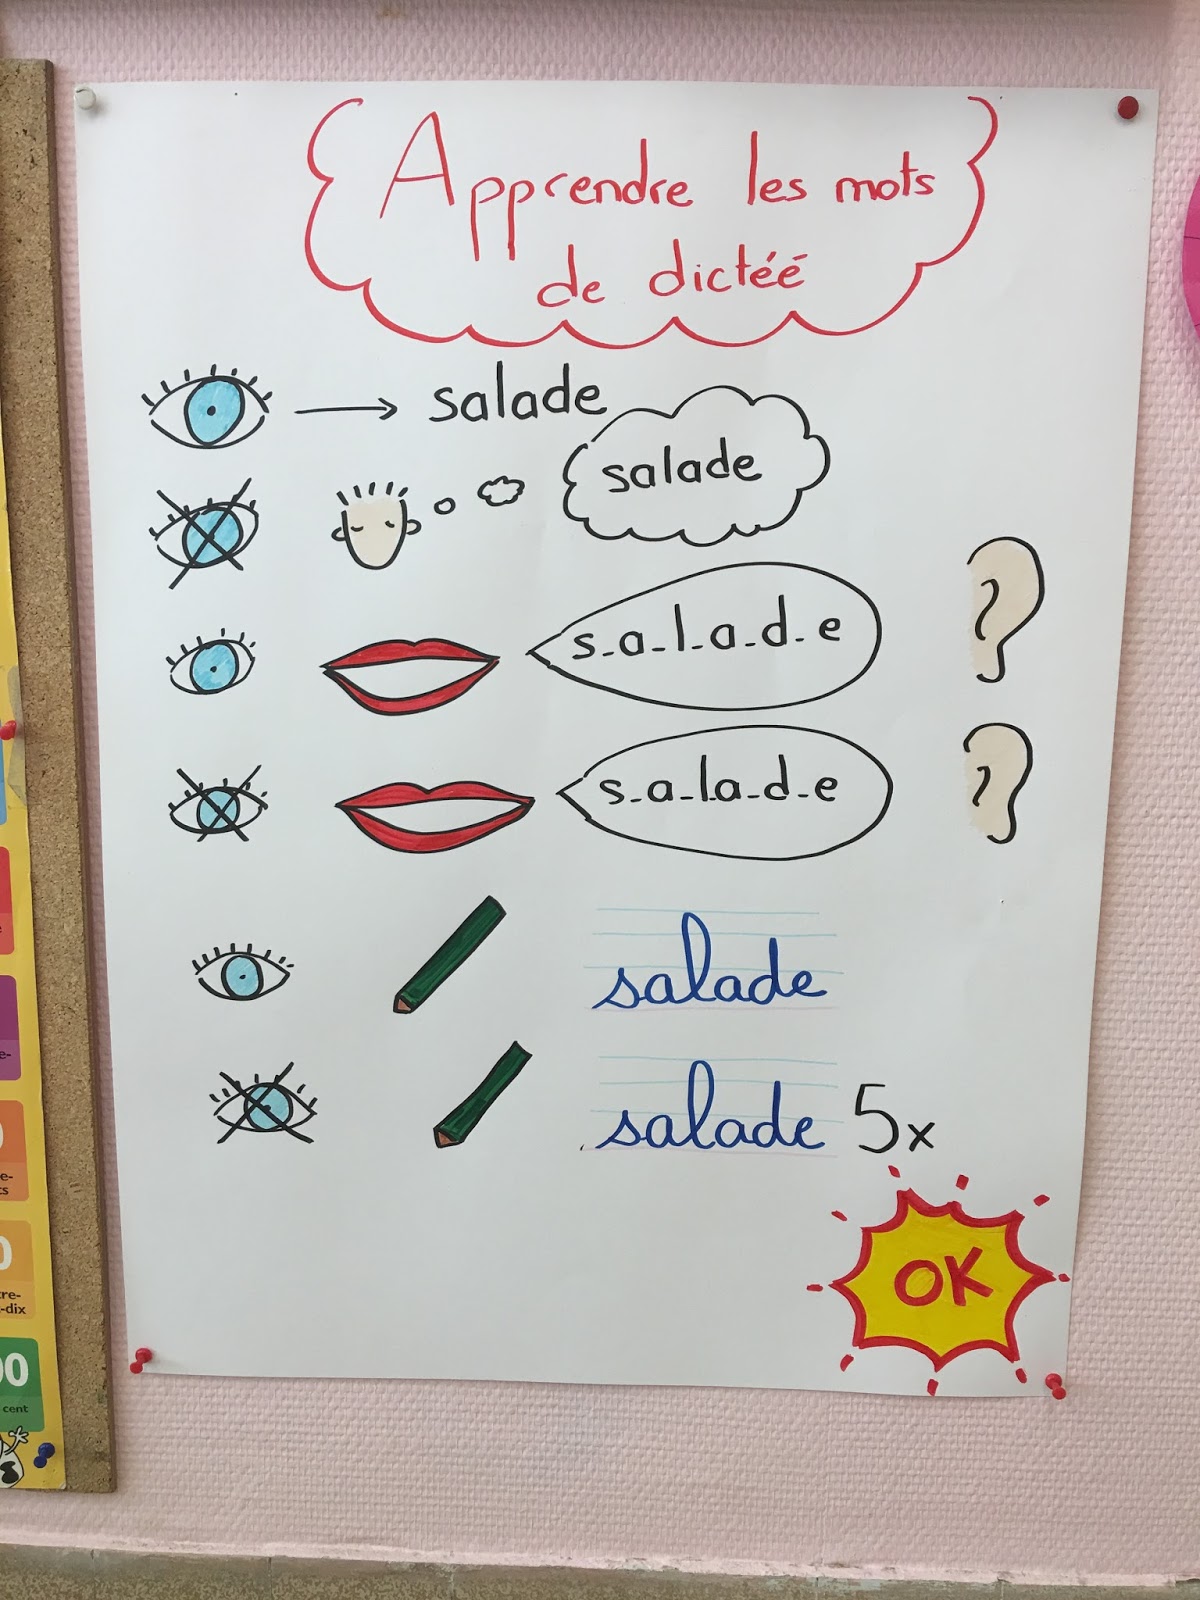 Apprendre les mots
de dictéé
salade
salade
s-a-l-a-d-e
s-a-l-a-d-e
salade
salade 5x
OK
cent